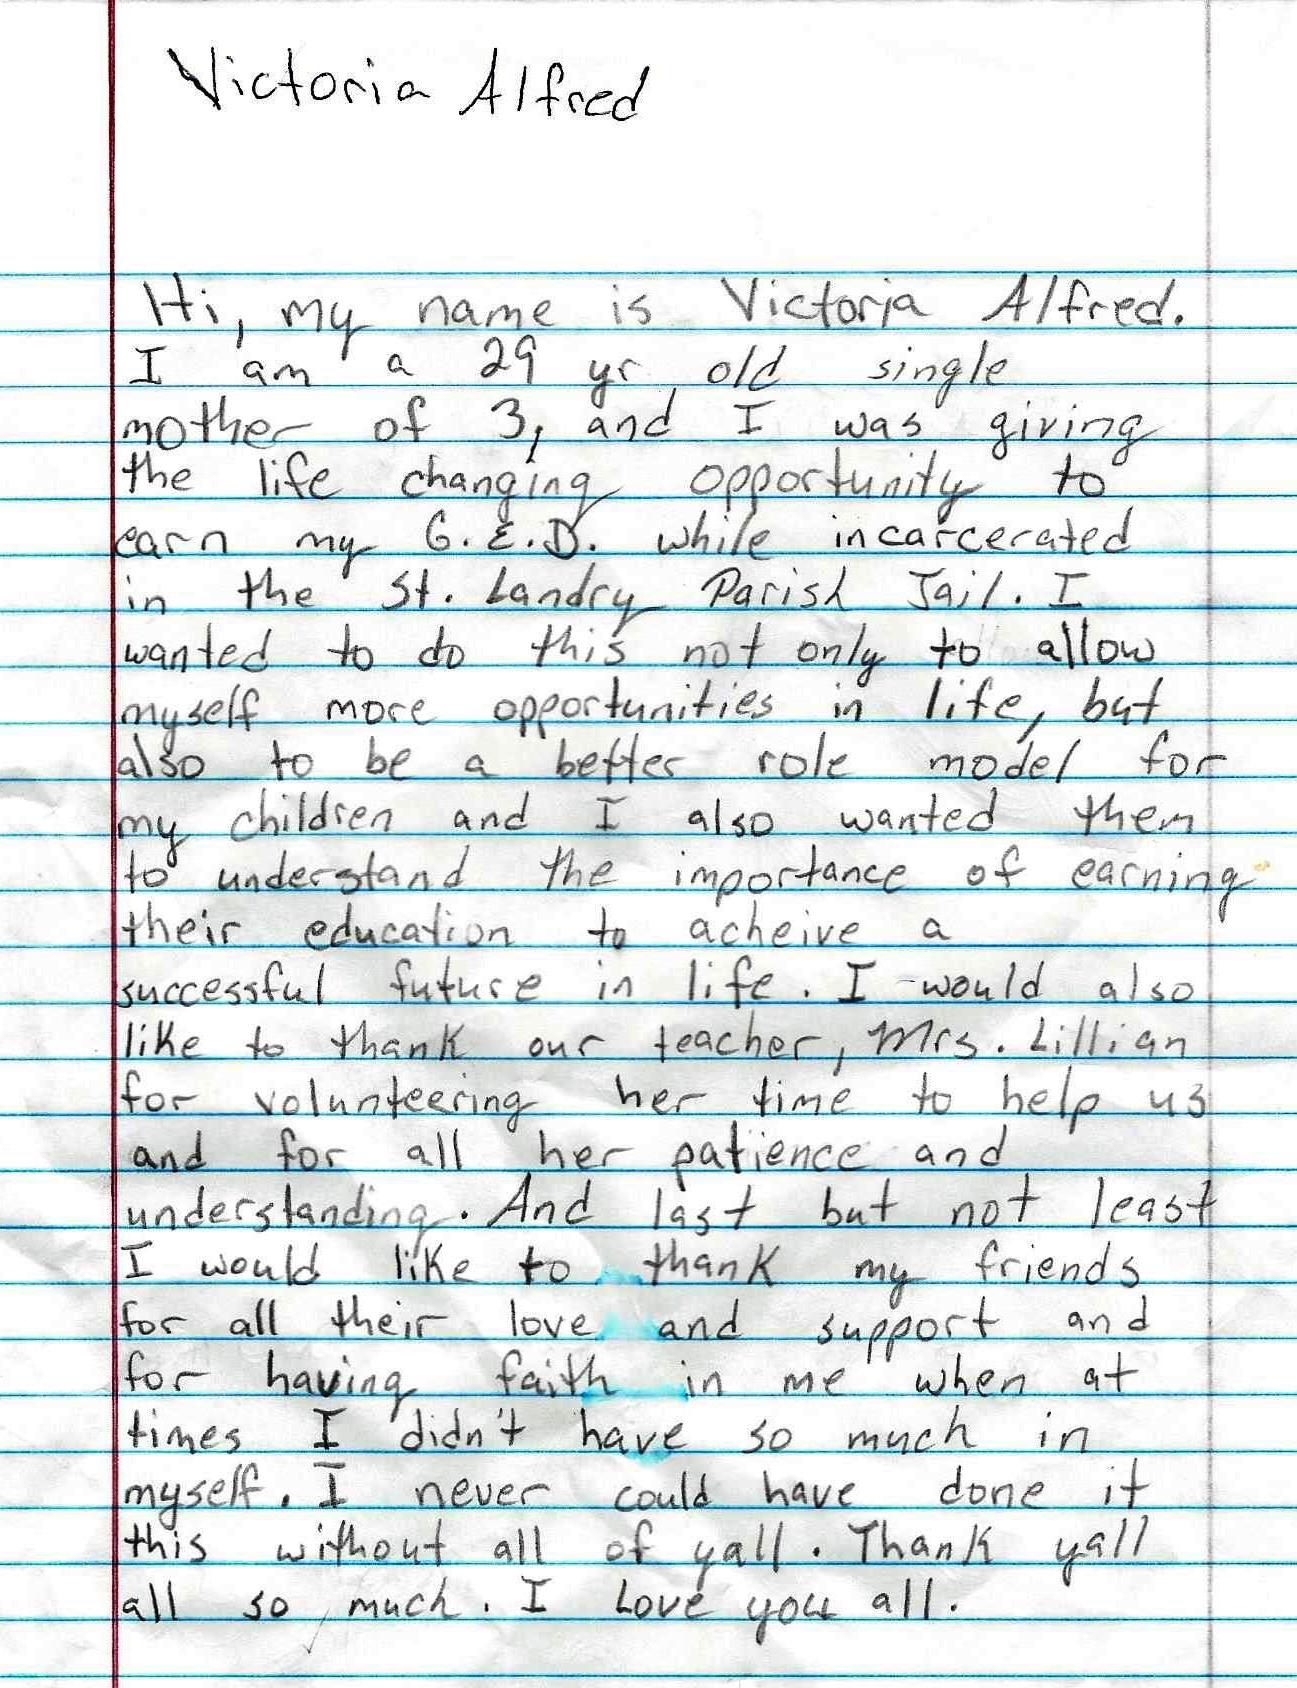 Victoria Alfred
Hi, my name is Victoria Alfred.
I am a 29 yr old single
mother of 3, and I was giving
the life changing opportunity to
earn my G.E.D. while incarcerated
in the St. Landry Parish Jail. I
wanted to do this not only to allow
myself more opportunities in life, but
also to be a better role model for
my children and I also wanted them
to understand the importance of earning
their education to acheive a
successful future in life. I would also
like to thank our teacher, Mrs. Lillian
for volunteering her time to help us
and for all her patience and
understanding. And last but not least
I would like to thank my friends
for all their love and support and
for having faith in me when at
times I didn't have so much in
myself. I never could have done it
this without all of yall. Thank yall
all so much. I Love you all.